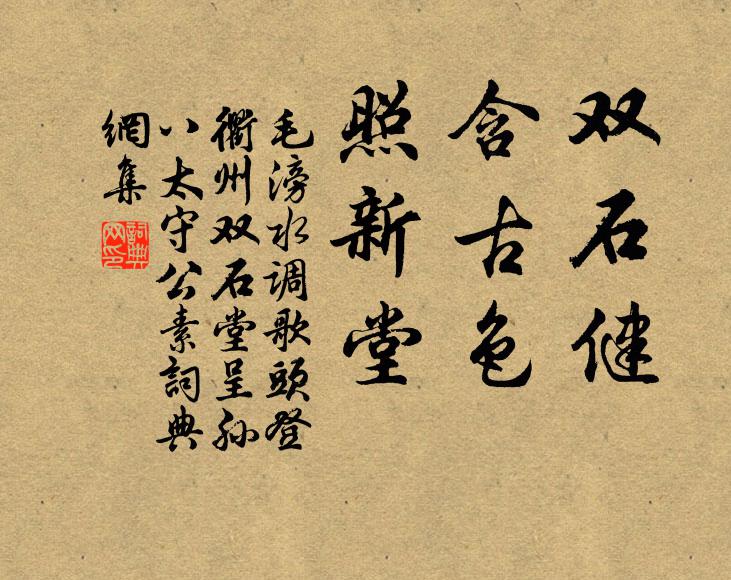 双石健
含古色
照新堂
毛滂水调歌頭登
衢州双石堂呈孙
八太守公素詞典
網集
詞典
网印